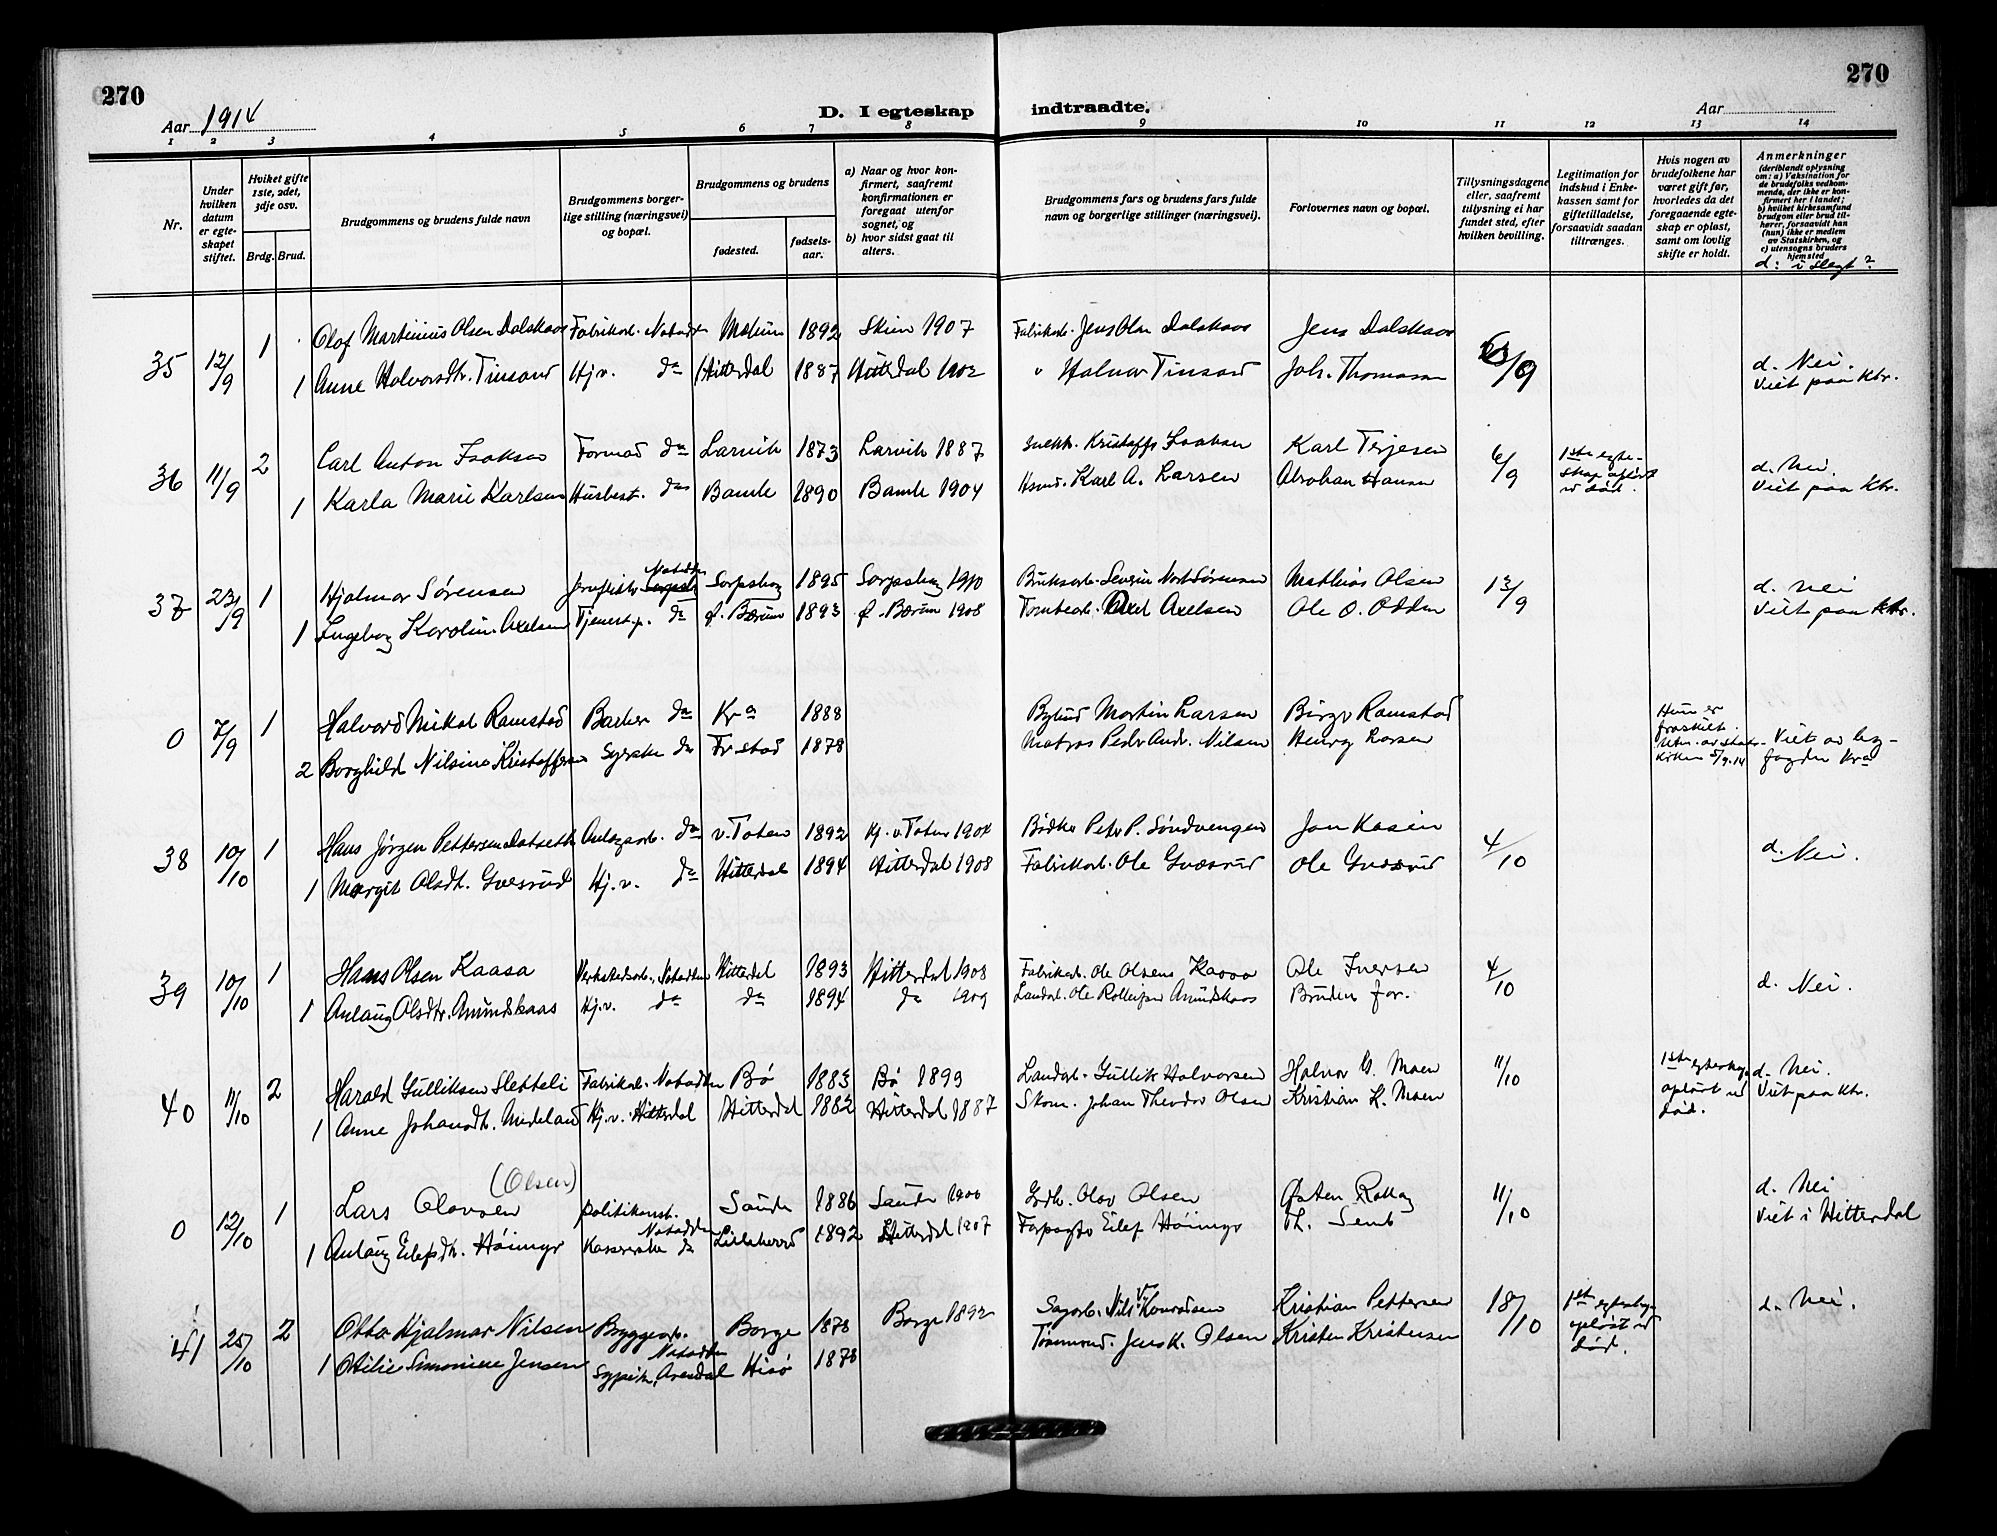 270
270
Aar 1914
D. I egteskap indtraadte.
Aar
1 2 3 4 5 6 7 8 9 10 11 12 13 14
Nr.
Under hvilken datum er egteskapet stiftet.
Hviket gifte 1ste, 2det, 3dje osv.
Brdg. Brud.
Brudgommens og brudens fulde navn
Brudgommens borgerlige stilling (næringsvei) og bopæl.
Brudgommens og brudens
fødested.
fødselsaar.
a) Naar og hvor konfirmert, saafremt konfirmationen er foregaat utenfor sognet, og
b) hvor sidst gaat til alters.
Brudgommens fars og brudens fars fulde navn og borgerlige stillinger (næringsvei).
Forlovernes navn og bopæl.
Tillysningsdagene eller, saafremt tillysning ei har fundet sted, efter hvilken bevilling.
Legitimation for indskud i Enkekassen samt for giftetilladelse, forsaavidt saadan tiltrænges.
Hvis nogen av brudefolkene har været gift før, hvorledes da det foregaaende egteskap er opløst, samt om lovlig skifte er holdt.
Anmerkninger
(deriblandt oplysning om: a) Vaksination for de brudefolks vedkommende, der ikke er konfirmert her i landet; b) hvilket kirkesamfund brudgom eller brud tilhører, forsaavidt han (hun) ikke er medlem av Statskirken, og c) utensogns bruders hjemsted
d: i slegt?
35 12/9 1 Olaf Martinius Olsen Dalskaas Fabrikarb. Notodden Melum 1892 Skien 1907 Fabrikarb. Jens Olsen Dalskaas Jens Dalskaas
1 Anne Halvorsdtr. Tinsand Hj.v. do Hitterdal 1887 Hitterdal 1902 " Halvor Tinsand Joh. Thomasen d. Nei. Viet paa Ktr.
36 11/9 2 Carl Anton Isaksen Formad do Larvik 1873 Larvik 1887 Kristoffs Isaksen Karl Terjesen 6/9 1ste egteskap opløst v død.
1 Karla Marie Karlsen Husbest. do Bamle 1890 Bamle 1904 Karl A. Larsen Abraham Hansen d. Nei. Viet paa Ktr.
37 23/9 1 Hjalmar Sørensen Notodden Sarpsborg 1895 Sarpsborg 1910 Bruksarb. Severin Sørensen Mathias Olsen 13/9 d. Nei
1 Ingeborg Karoline Axelsen Tjenest.p. do Ø. Bærum 1893 Ø. Bærum 1908 Tomtearb. Axel Axelsen Ole O. Odden Viet paa Ktr.
0 7/9 1 Halvard Mikal Ramstad Barber do Kra 1888 Martin Larsen Birger Ramstad Hun er fraskilt.
2 Borghild Nilsine Kristoffersen Syerske do Fr.stad 1878 Matros Peder Andr. Nilsen Henry Larsen Utm. av statskirken 5/9.14 Viet av byfogden Kra
38 10/10 1 Hans Jørgen Pettersen Anlægsarb. do v. Toten 1892 Kj. v. Toten 1907 Bødker Peter P. Søndvengen Jon Kasin 4/10 d. Nei.
1 Margit Olsdtr. Gvesrud Hj.v. do Hitterdal 1894 Hitterdal 1908 Fabrikarb. Ole Gvæsrud Ole Gvæsrud
39 10/10 1 Hans Olsen Kaasa Verkstedsarb. Notodden Hitterdal 1893 Hitterdal 1908 Fabrikarb. Ole Olsen Kaasa Ole Iversen 4/10 d. Nei.
1 Anlaug Olsdtr. Amundskaas Hj.v. do do 1894 do 1909 Landarb. Ole Rolleifsen Amundskaas Brudens far.
40 11/10 2 Harald Gulliksen Sletteli Fabrikarb. Notodden Bø 1883 Bø 1899 Landarb. Gullik Halvorsen Halvor G. Moen 11/10 1ste egteskap opløst v død. d. Nei. Viet paa Ktr.
1 Anne Johansdtr. Medeland Hj.v. Hitterdal Hitterdal 1882 Hitterdal 1887 Skom. Johan Theodor Olsen Kristian K. Moen
0 12/10 1 Lars Olavsen (Olsen) Politikonst. Notodden Saude 1886 Saude 1900 Grdb. Olav Olsen Østen Rollag 11/10 d. Nei
1 Anlaug Eilefsdtr. Høimyr Kassererske do Lilleherred 1892 Hitterdal 1907 Forpagter Eilef Høimyr Th. Semb Viet i Hitterdal
41 25/10 2 Otto Hjalmar Nilsen Byggearb. Notodden Borge 1878 Borge 1892 Sagarb. Nils Konradsen Kristian Pettersen 18/10 1ste egteskap opløst v død. d. Nei.
1 Otilie Simonine Jensen Sypike, Arendal Hisø 1878 Tømmermd. Jens K. Olsen Kristen Kristensen